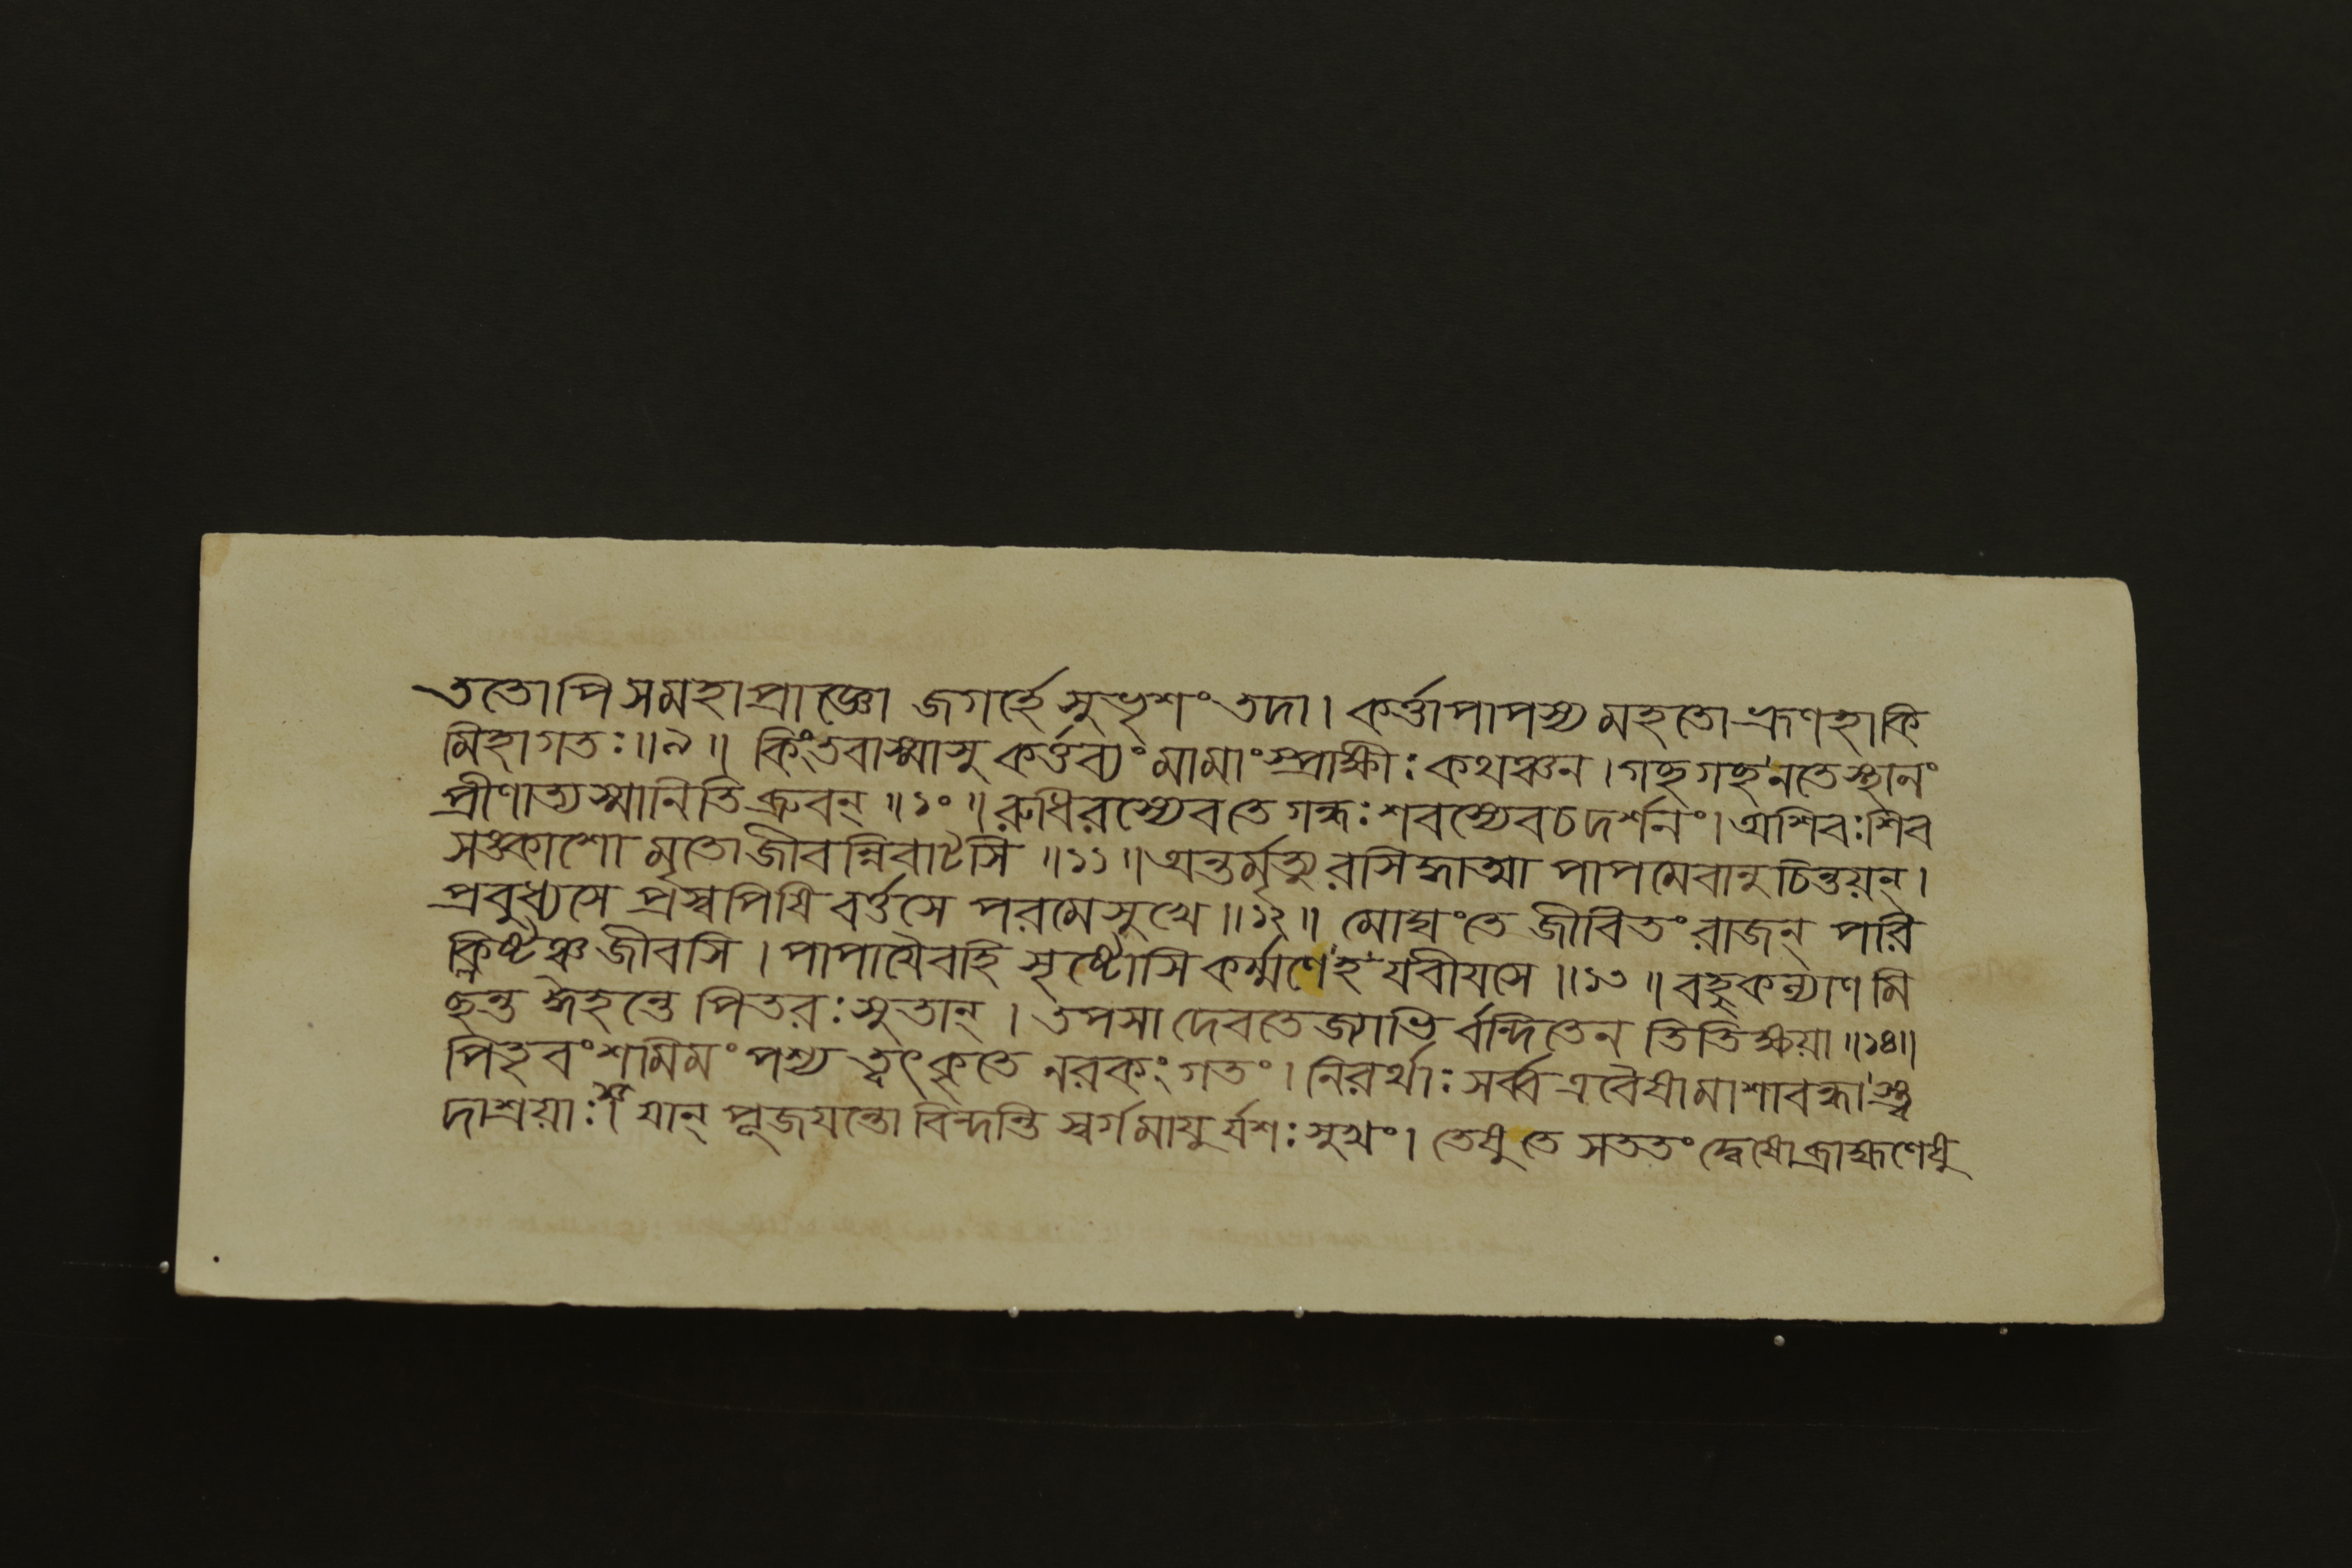 ততোপি সমহাপ্রাজ্ঞো জগর্হে সুভৃশং তদা। কর্ত্তাপাপস্য মহতো ভ্রূণহা কি
মিহাগতঃ॥৯॥ কিংতবাস্মাসু কর্ত্তব্যং মামাংস্প্রাক্ষীঃ কথঞ্চন। গচ্ছ গচ্ছ নতে স্থানং
প্রীণাত্যস্মানিতি ব্রুবন্॥১০॥ রুধিরস্যেব তে গন্ধঃ শবস্যেব চ দর্শনং। অশিবঃ শিব
সঙ্কাশো মৃতো জীবন্নিবাটসি॥১১॥ অন্তর্মৃত্যুরসিদ্ধাত্মা পাপমেবানুচিন্তয়ন্।
প্রবুধ্যসে প্রস্বপিষি বর্ত্তসে পরমে সুখে॥১২॥ মোঘং তে জীবিতং রাজন্ পরি
ক্লিষ্টঞ্চ জীবসি। পাপায়ৈবহি সৃষ্টোসি কর্ম্মণেহ যবীযসে॥১৩॥ বহুকল্যাণমি
ছন্ত ঈহন্তে পিতরঃ সুতান্। তপসা দেবতেজ্যাভির্বন্দিতেন তিতিক্ষয়া॥১৪॥
পিতৃবংশমিমং পশ্য ত্বৎকৃতে নরকং গতং। নিরর্থাঃ সর্ব্ব এবৈষামাশাবন্ধাস্ত্ব
দাশ্রয়াঃ। যান্ পূজযন্তো বিন্দন্তি স্বর্গমাযুর্যশঃ সুখং। তেষু তে সততং দ্বেষো ব্রাহ্মণেষু